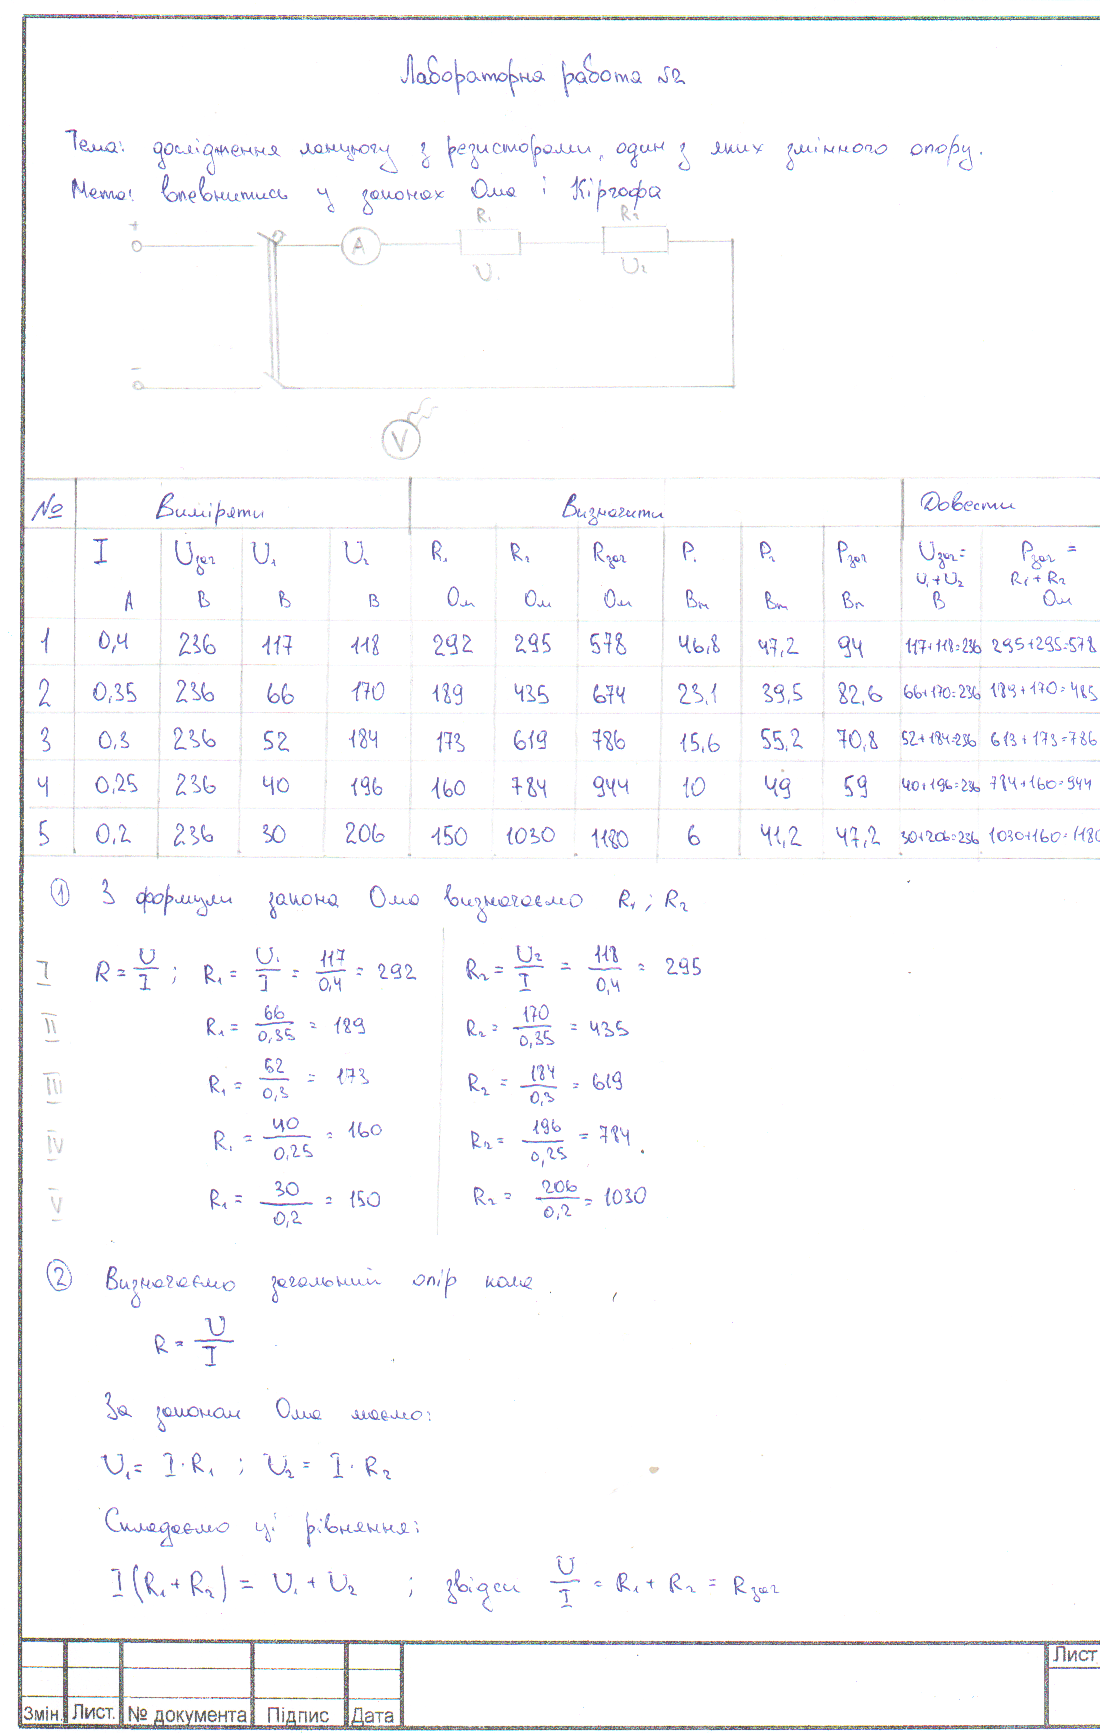 Лабораторна работа №2
Тема: дослідження ланцюгу з резисторами, один з яких змінного опору.
Мета: впевнитись у законах Ома і Кіргофа
+ A R₁ U₁ R₂ U₂
-
V
№ Виміряти Визначити Довести
I Uзаг U₁ U₂ R₁ R₂ Rзаг P₁ P₂ Pзаг Uзаг= U₁+U₂ Pзаг = R₁+R₂
А В В В Ом Ом Ом Вт Вт Вт В Ом
1 0,4 236 117 118 292 295 578 46,8 47,2 94 117+118=236 295+295=578
2 0,35 236 66 170 189 435 674 23,1 39,5 82,6 66+170=236 189+170=485
3 0,3 236 52 184 173 619 786 15,6 55,2 70,8 52+184=236 613+173=786
4 0,25 236 40 196 160 784 944 10 49 59 40+196=236 784+160=944
5 0,2 236 30 206 150 1030 1180 6 41,2 47,2 30+206=236 1030+160=1180
① З формули закона Ома визначаємо R₁; R₂
I R = U/I ; R₁ = U₁/I = 117/0,4 = 292 R₂ = U₂/I = 118/0,4 = 295
II R₁ = 66/0,35 = 189 R₂ = 170/0,35 = 435
III R₁ = 52/0,3 = 173 R₂ = 184/0,3 = 619
IV R₁ = 40/0,25 = 160 R₂ = 196/0,25 = 784
V R₁ = 30/0,2 = 150 R₂ = 206/0,2 = 1030
② Визначаємо загальний опір кола
R = U/I
За законам Ома маємо:
U₁ = I·R₁ ; U₂ = I·R₂
Складаємо ці рівняння:
I(R₁+R₂) = U₁+U₂ ; звідси U/I = R₁+R₂ = Rзаг
Лист
Змін. Лист. № документа Підпис Дата